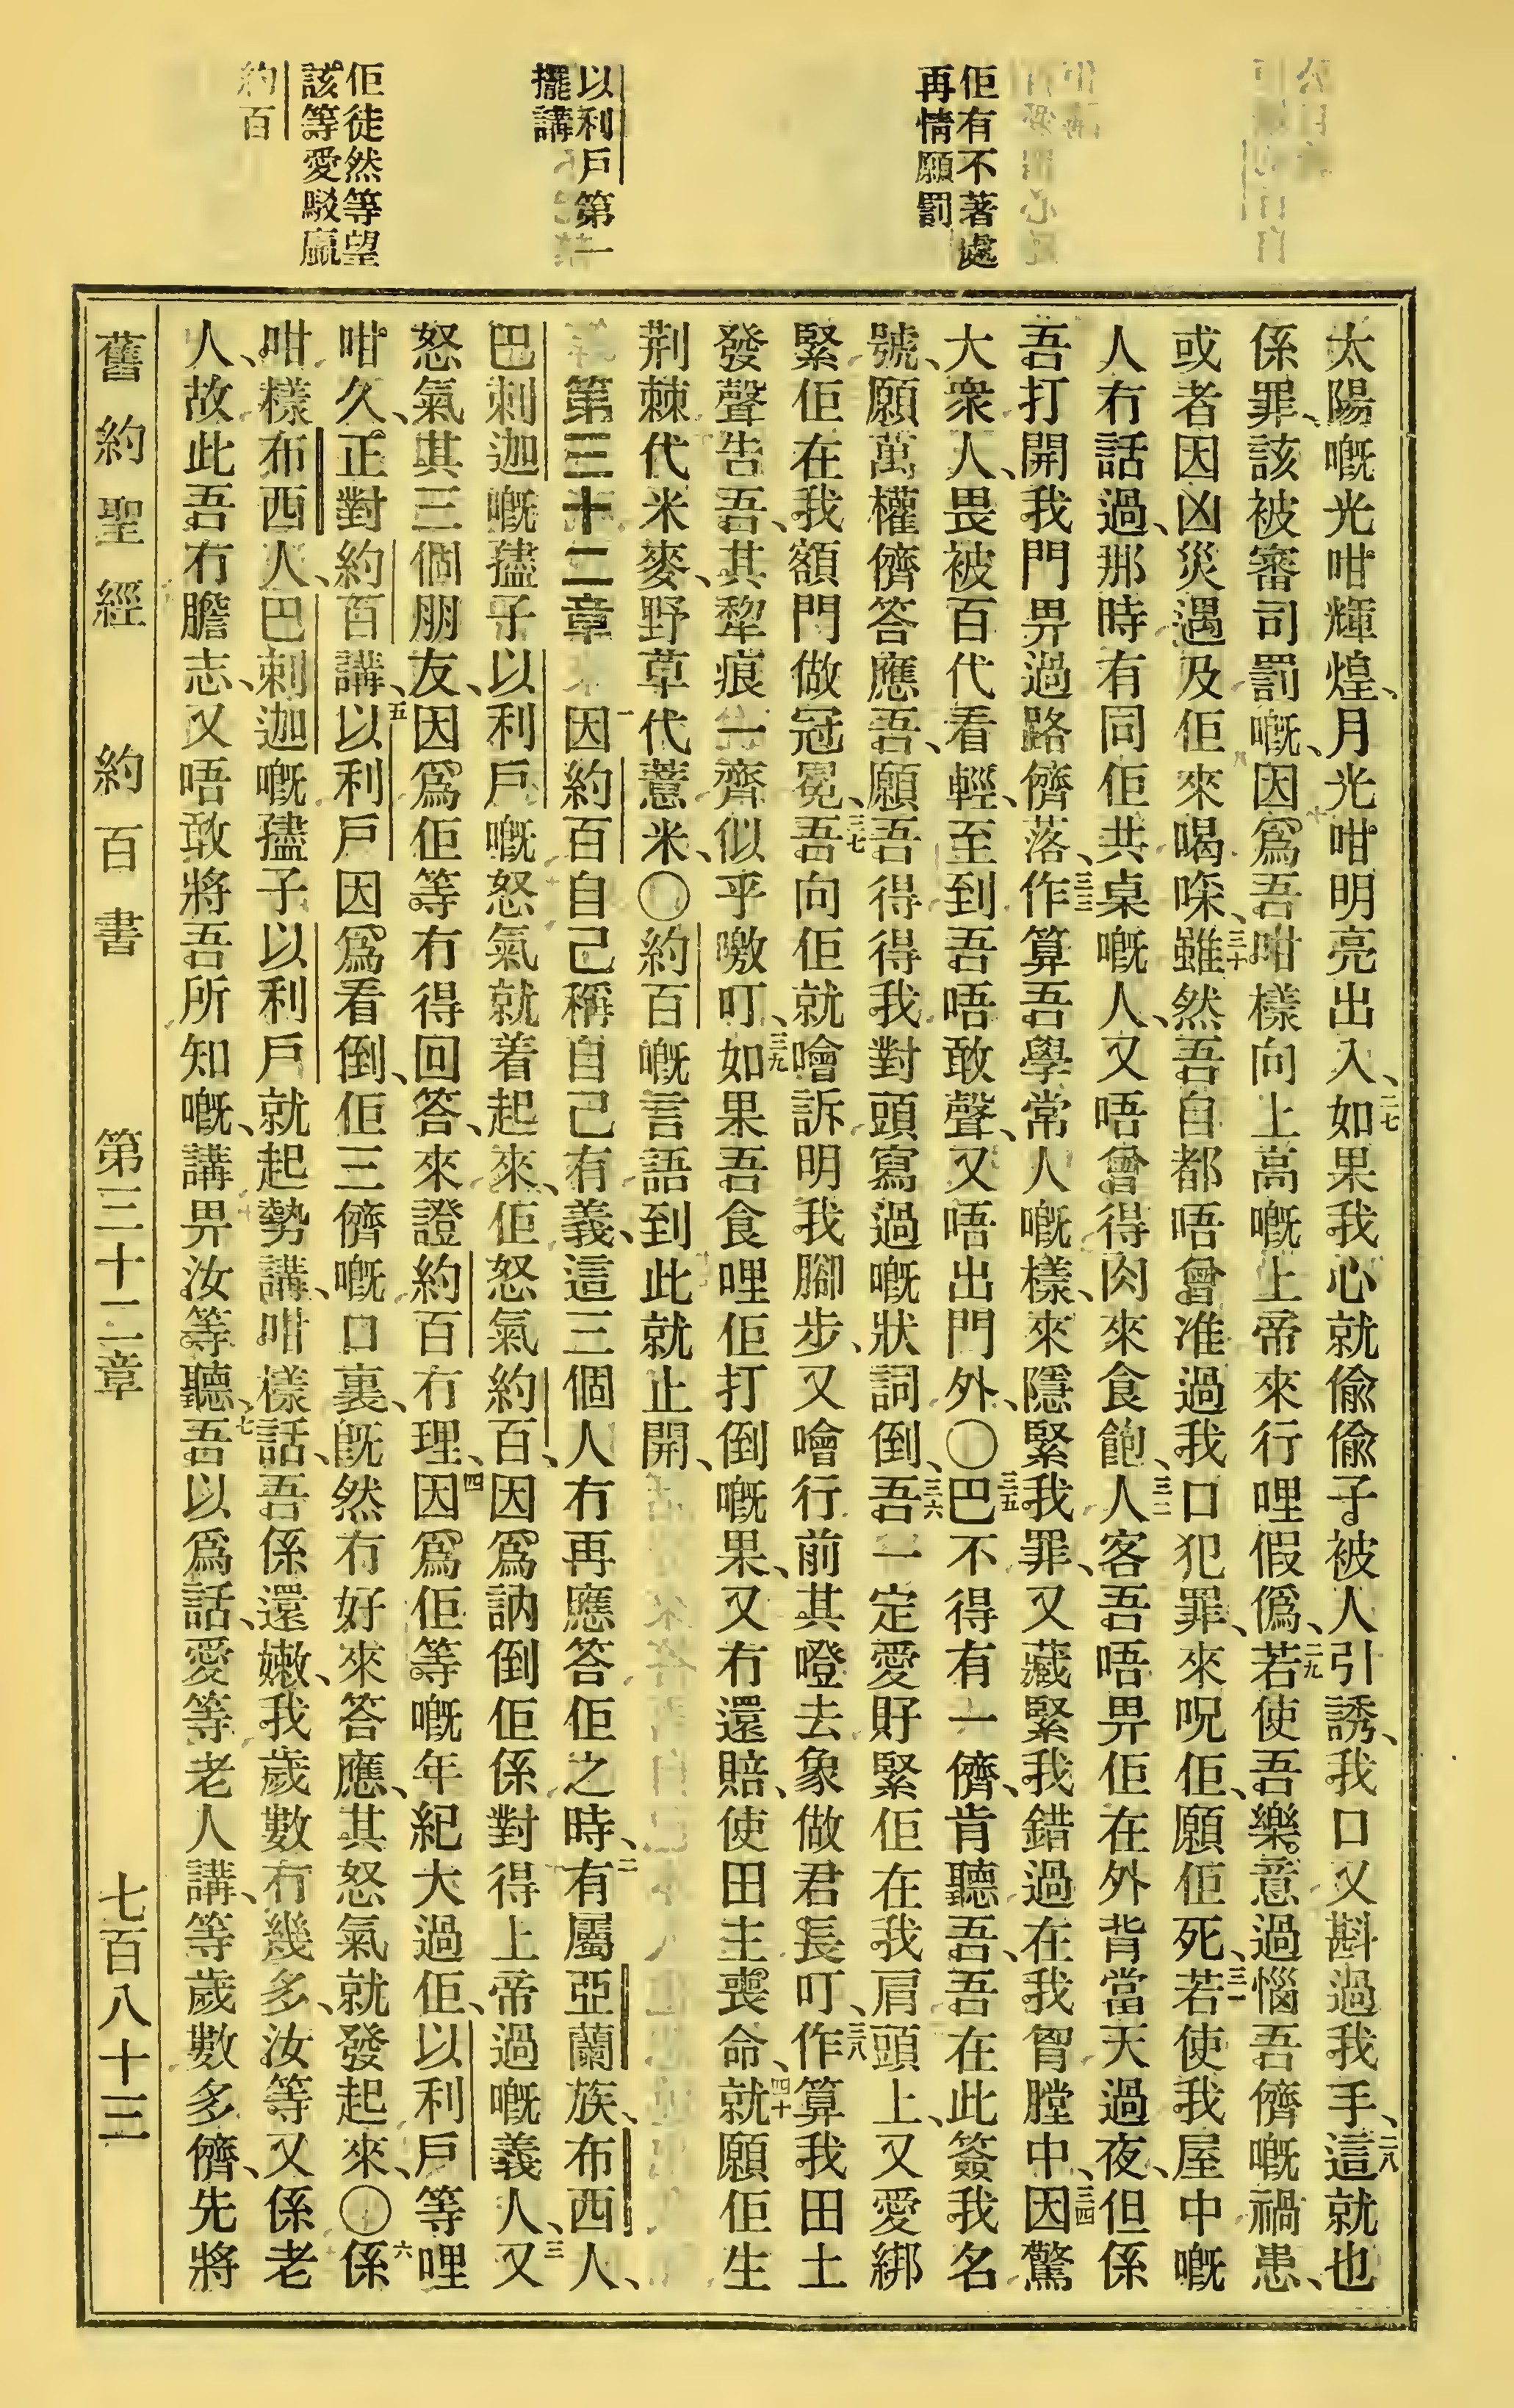 佢有不著處
再情願罰
以利戶第一
擺講
佢徒然等望
該等愛駁贏
約百
太陽嘅光咁輝煌、月光咁明亮出入、二七如果我心就偸偸子被人引誘、我口又斟過我手、二八這就也
係罪、該被審司罰嘅、因爲吾咁樣向上高嘅上帝來行哩假僞、二九若使吾樂意過惱吾儕嘅禍患、
或者因凶災遇及佢來喝㗒、三十雖然吾自都唔曾准過我口犯罪、來呪佢、願佢死、三一若使我屋中嘅
人冇話過、那時有同佢共桌嘅人、又唔曾得肉來食飽、三二人客吾唔畀佢在外背當天過夜、但係
吾打開我門畀過路儕落、三三作算吾學常人嘅樣、來隱緊我罪、又藏緊我錯過在我胷膛中、三四因驚
大衆人、畏被百代看輕、至到吾唔敢聲、又唔出門外、〇三五巴不得有一儕、肯聽吾、吾在此簽我名
號、願萬權儕答應吾、願吾得得我對頭寫過嘅狀詞倒、三六吾一定愛㝀緊佢在我肩頭上、又愛綁
緊佢在我額門做冠冕、三七吾向佢就噲訴明我腳步、又噲行前其磴去象做君長叮、三八作算我田土
發聲告吾、其犂痕一齊似乎噭叮、三九如果吾食哩佢打倒嘅果、又冇還賠、使田主喪命、四十就願佢生
荆棘代米麥、野草代薏米、〇約百嘅言語到此就止開、
第三十二章 一因約百自己稱自己有義、這三個人冇再應答佢之時、二有屬亞蘭族、布西人、
巴刺迦嘅孻子以利戶嘅怒氣就着起來、佢怒氣約百、因爲訥倒佢係對得上帝過嘅義人、三又
怒氣其三個朋友、因爲佢等冇得回答、來證約百冇理、四因爲佢等嘅年紀大過佢、以利戶等哩
咁久、正對約百講、五以利戶因爲看倒、佢三儕嘅口裏、既然冇好來答應、其怒氣就發起來、〇六係
咁樣布西人、巴刺迦嘅孻子以利戶就起勢講、咁樣話、吾係還嫩、我歲數冇幾多、汝等又係老
人、故此吾冇膽志、又唔敢將吾所知嘅、講畀汝等聽、七吾以爲話、愛等老人講、等歲數多儕、先將
舊約聖經 約百書 第三十二章 七百八十三